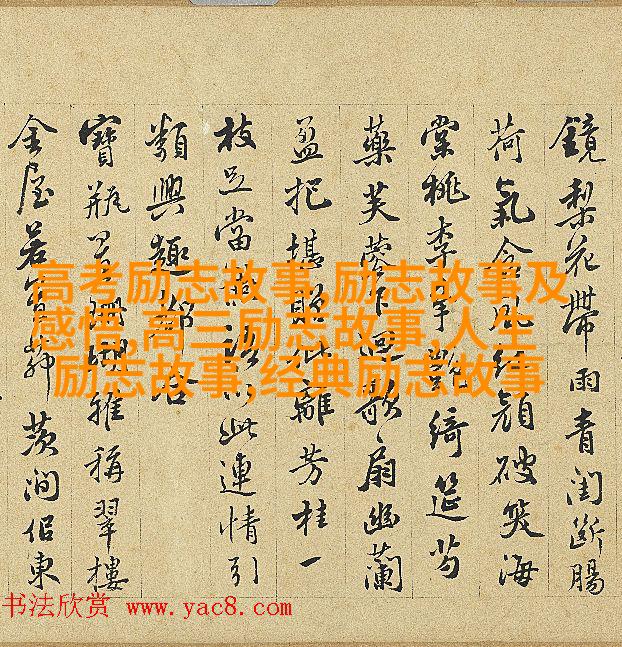 鏡梨花帶雨青閨斷腸
荷氣含風紅顏破笑海
棠桃李爭艷綺筵芍
藥芙蓉歌扇幽蘭
盈把堪贈仳離芳桂一
枝足當語以此連情引
類興趣合
寶瓶雅稱翠樓
金屋若茨澗侶東
高考励志故事,励志故事及
感悟,高三励志故事,人生
励志故事,经典励志故事
书法欣赏 www.yac8.com